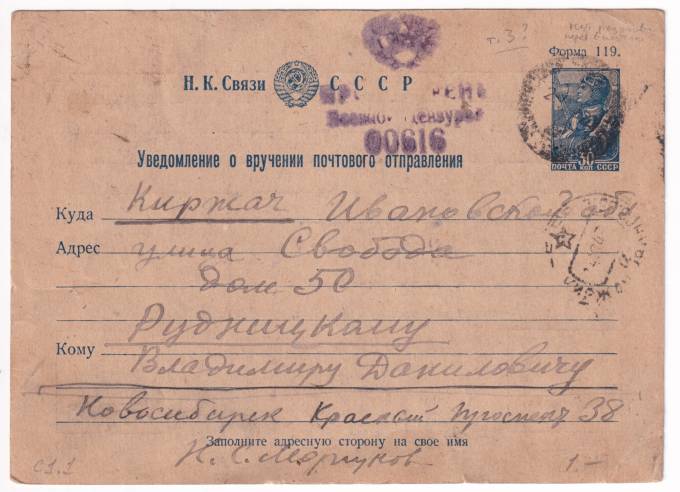 т. 3?
Форма 119.
Н. К. Связи СССР
Военной Цензурой
00616
30
ПОЧТА КОП СССР
Уведомление о вручении почтового отправления
Куда Киржач Ивановской обл
Адрес улица Свобода
дом 50
Рудницкому
Кому Владимиру Даниловичу
Новосибирск Красный Проспект 38
Заполните адресную сторону на свое имя
Н. С. Моргунов
с1.1
1.-